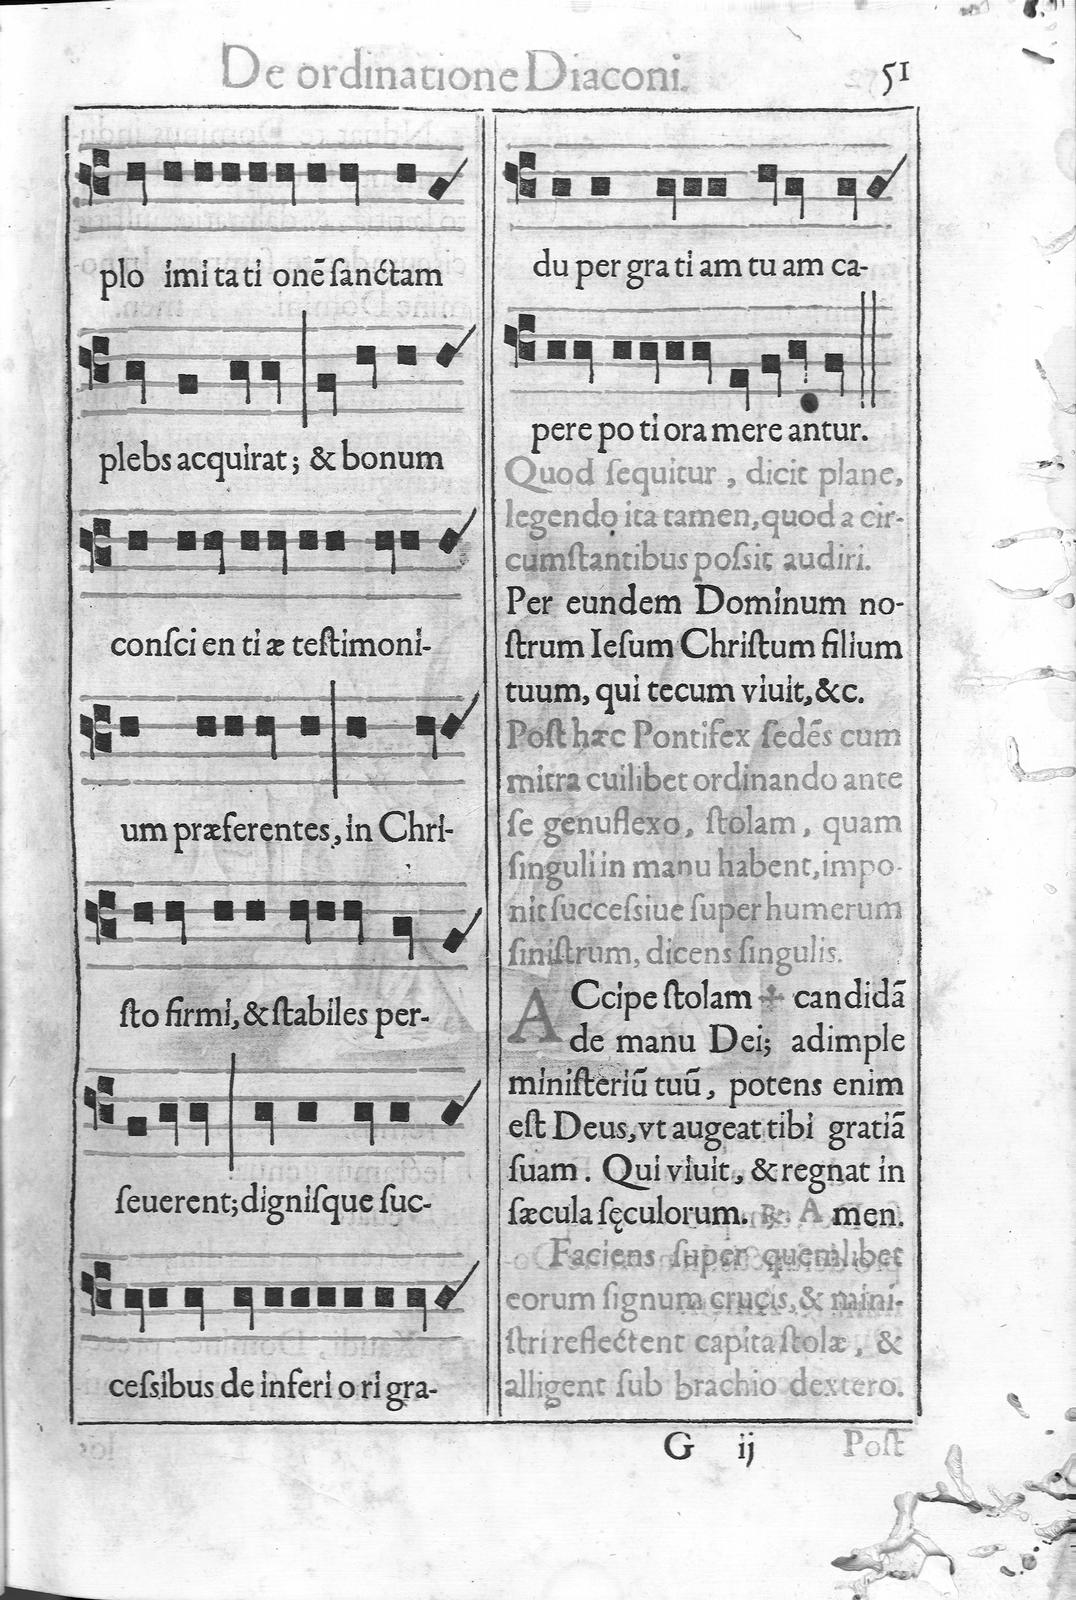 De ordinatione Diaconi.
51
plo imi ta ti onē ſanctam
plebs acquirat; & bonum
conſci en ti æ teſtimoni-
um præferentes, in Chri-
ſto firmi, & ſtabiles per-
ſeuerent; digniſque ſuc-
ceſsibus de inferi o ri gra-
du per gra ti am tu am ca-
pere po ti ora mere antur.
Quod ſequitur, dicit plane,
legendo ita tamen, quod a cir-
cumſtantibus poſsit audiri.
Per eundem Dominum no-
ſtrum Ieſum Chriſtum filium
tuum, qui tecum viuit, &c.
Poſt hæc Pontifex ſedēs cum
mitra cuilibet ordinando ante
ſe genuflexo, ſtolam, quam
ſinguli in manu habent, impo-
nit ſucceſsiue ſuper humerum
ſiniſtrum, dicens ſingulis.
ACcipe ſtolam ✠ candidā
de manu Dei; adimple
miniſteriū tuū, potens enim
eſt Deus, vt augeat tibi gratiā
ſuam. Qui viuit, & regnat in
ſæcula ſęculorum. ℟. Amen.
Faciens ſuper quemlibet
eorum ſignum crucis, & mini-
ſtri reflectent capita ſtolæ, &
alligent ſub brachio dextero.
G ij
Poſt